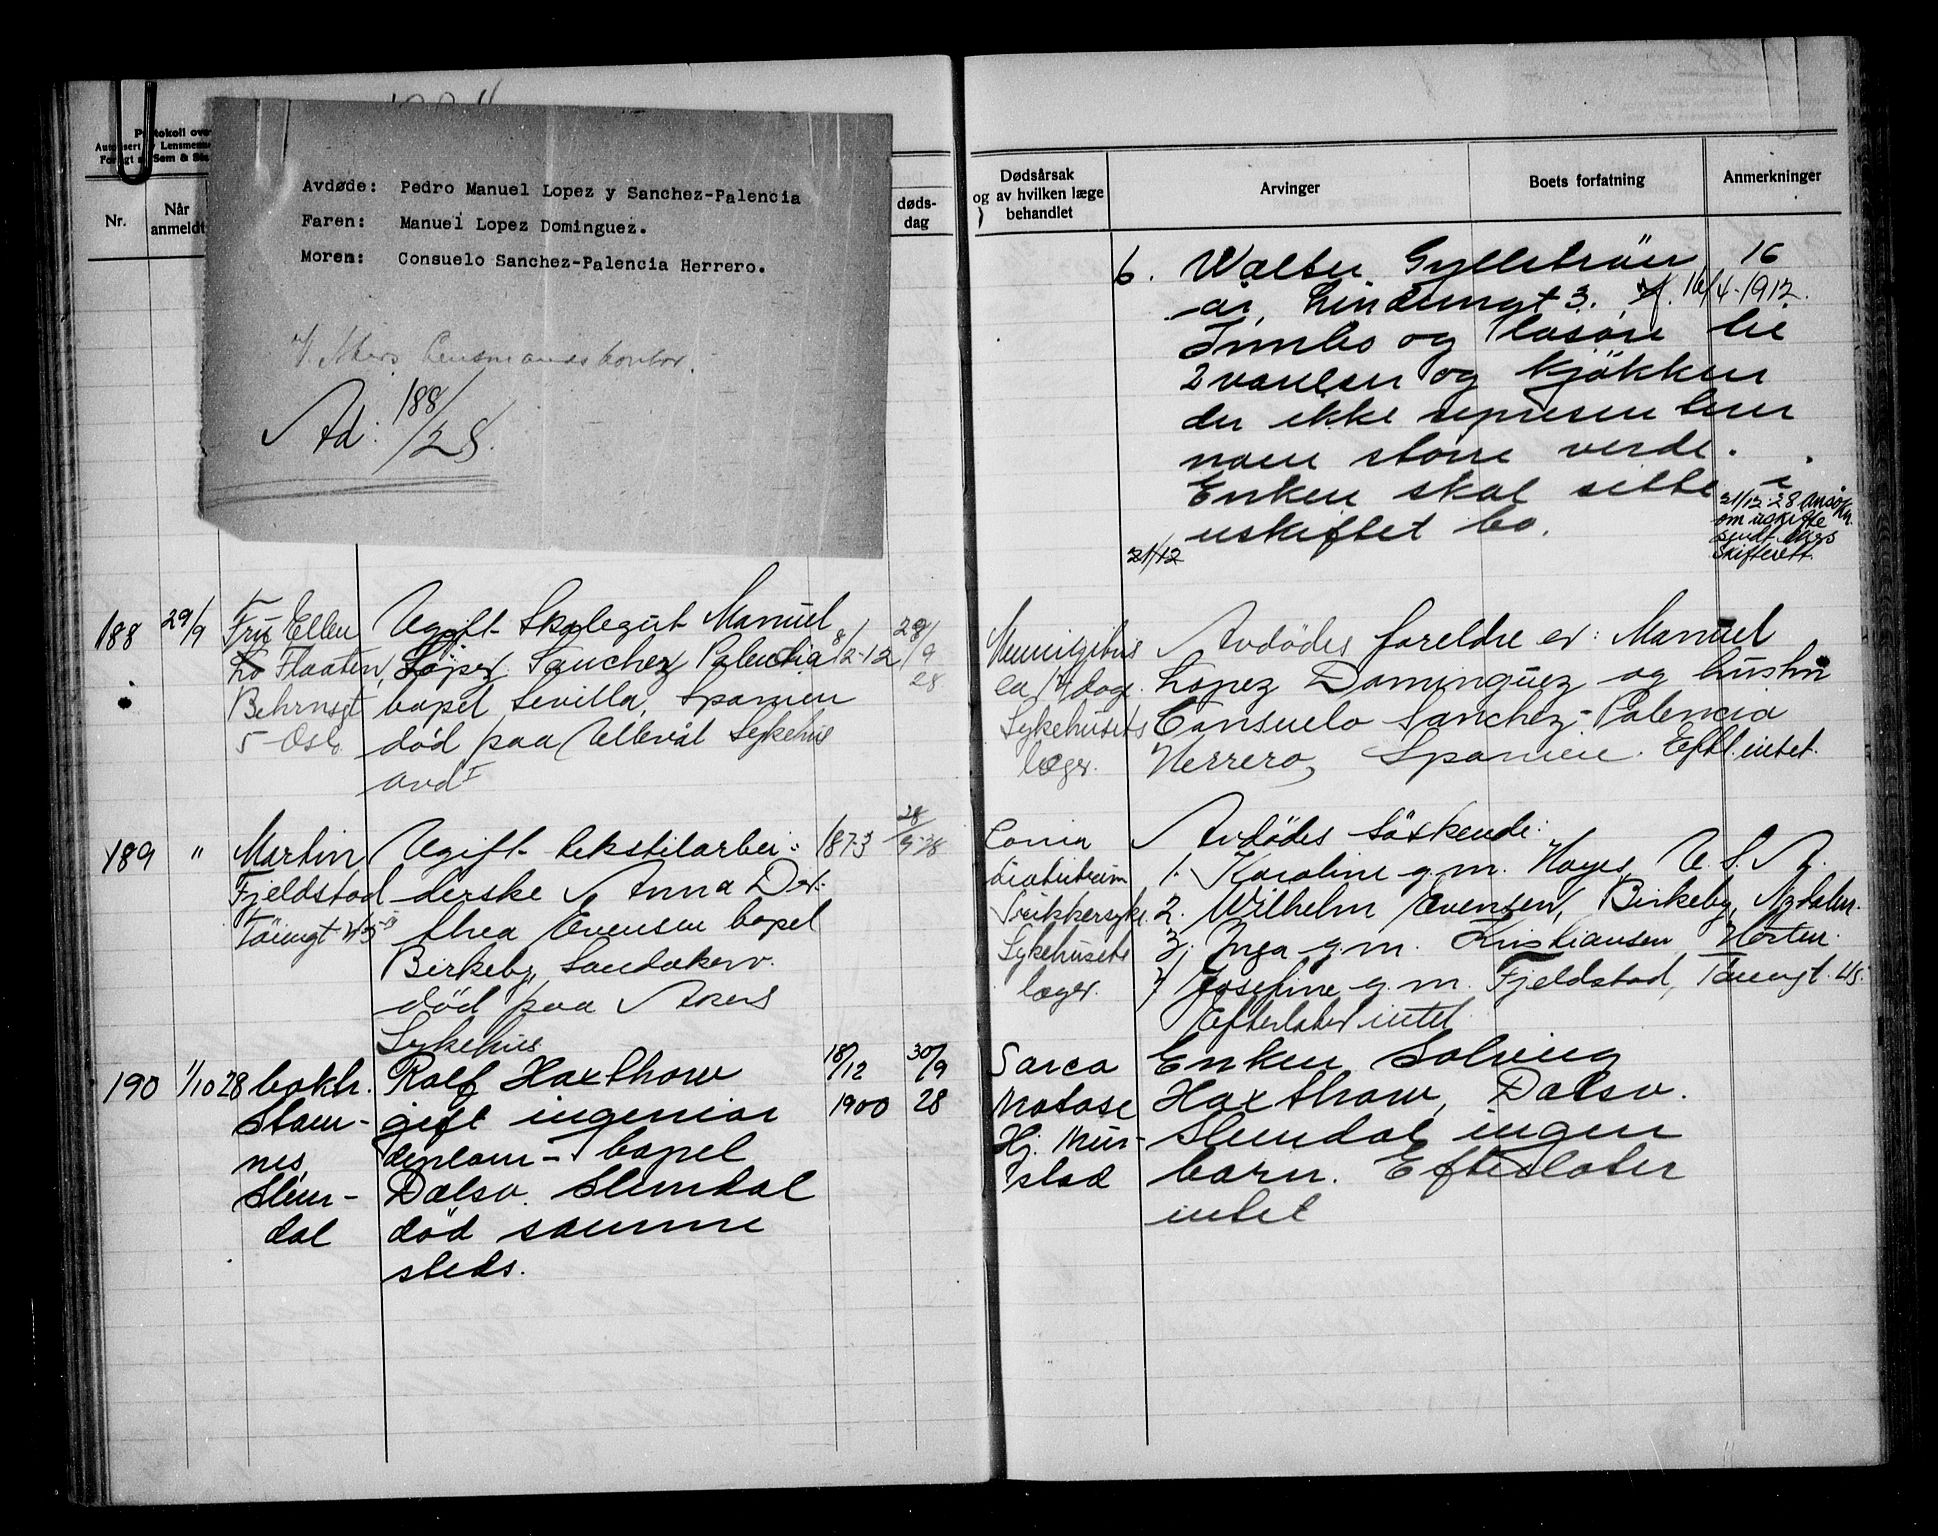 Protokoll ove
Autorisert Lensmenne
Forlagt Sem & Ste
Nr.
Når
anmeldt
Avdøde: Pedro Manuel Lopez y Sanchez-Palencia
Faren: Manuel Lopez Dominguez.
Moren: Consuelo Sanchez-Palencia Herrero.
Akers lensmandskontor.
Ad: 188/28.
døds-
dag
Dødsårsak
og av hvilken læge
behandlet
Arvinger
Boets forfatning
Anmerkninger
6. Walter Gyllstrøm 16
år, Linderngt 3. f. 16/4-1912.
Innbo og løsøre til
2 værelser og kjøkken
der ikke represen terer
noen større verdi.
Enken skal sitte i
uskiftet bo.
21/12
21/12-28 Ansøkn.
om uskifte
sendt Akers
Skifterett.
188
29/9
Fru Ellen
Flaaten,
Behrnsgt
5 Oslo
Ugift Skolegut Manuel
Lopez Sanchez Palencia
bopel Sevilla, Spanien
død paa Ullevål Sykehus
avd I
8/2-12
28/9
28
Meningitis
ca 14 dage.
Sykehusets
læger.
Avdødes foreldre er: Manuel
Lopez Dominguez og hustru
Consuelo Sanchez-Palencia
Herrero, Spanien. Eftl. intet.
189
"
Martin
Fjeldstad
Tøiengt 45
Ugift tekstilarbei-
derske Anna Do-
thea Evensen bopel
Birkeby, Sandakerv.
død paa Akers
Sykehus
1873
28/9-28
Coma
diabeticum
Sukkersyke
Sykehusets
læger.
Avdødes søskende:
1. Karoline g.m. Hayes, U.S.A.
2. Wilhelm Evensen, Birkeby, Nydalen.
3. Inga g.m. Kristiansen Horten.
4 Josefine g.m. Fjeldstad, Tøiengt. 45.
Efterlater intet
190
1/10 28
bokh.
Stam-
nes,
Slem-
dal
Rolf Haxthow
gift ingeniør
diplom- bopel
Dalsv. Slemdal
død samme
steds.
18/12
1900
30/9
28
Sarco
matose
Hj. Mur-
stad
Enken Solveig
Haxthow, Dalsv.
Slemdal ingen
barn. Efterlater
intet